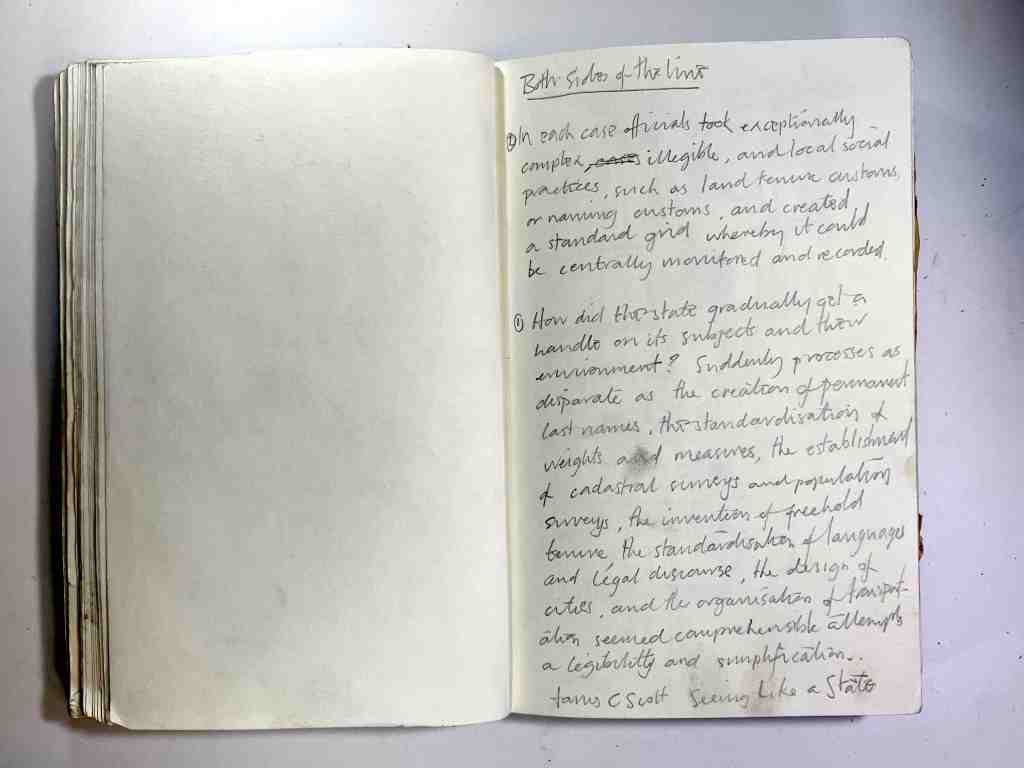 Both Sides of the Line
② In each case officials took exceptionally
complex, cases illegible, and local social
practices, such as land tenure customs,
or naming customs, and created
a standard grid whereby it could
be centrally monitored and recorded.
① How did the state gradually get a
handle on its subjects and their
environment? Suddenly processes as
disparate as the creation of permanent
last names, the standardisation of
weights and measures, the establishment
of cadastral surveys and population
surveys, the invention of freehold
tenure the standardisation of languages
and legal discourse, the design of
cities, and the organisation of transport-
ation seemed comprehensible attempts
a legibility and simplification..
James C Scott Seeing Like a State